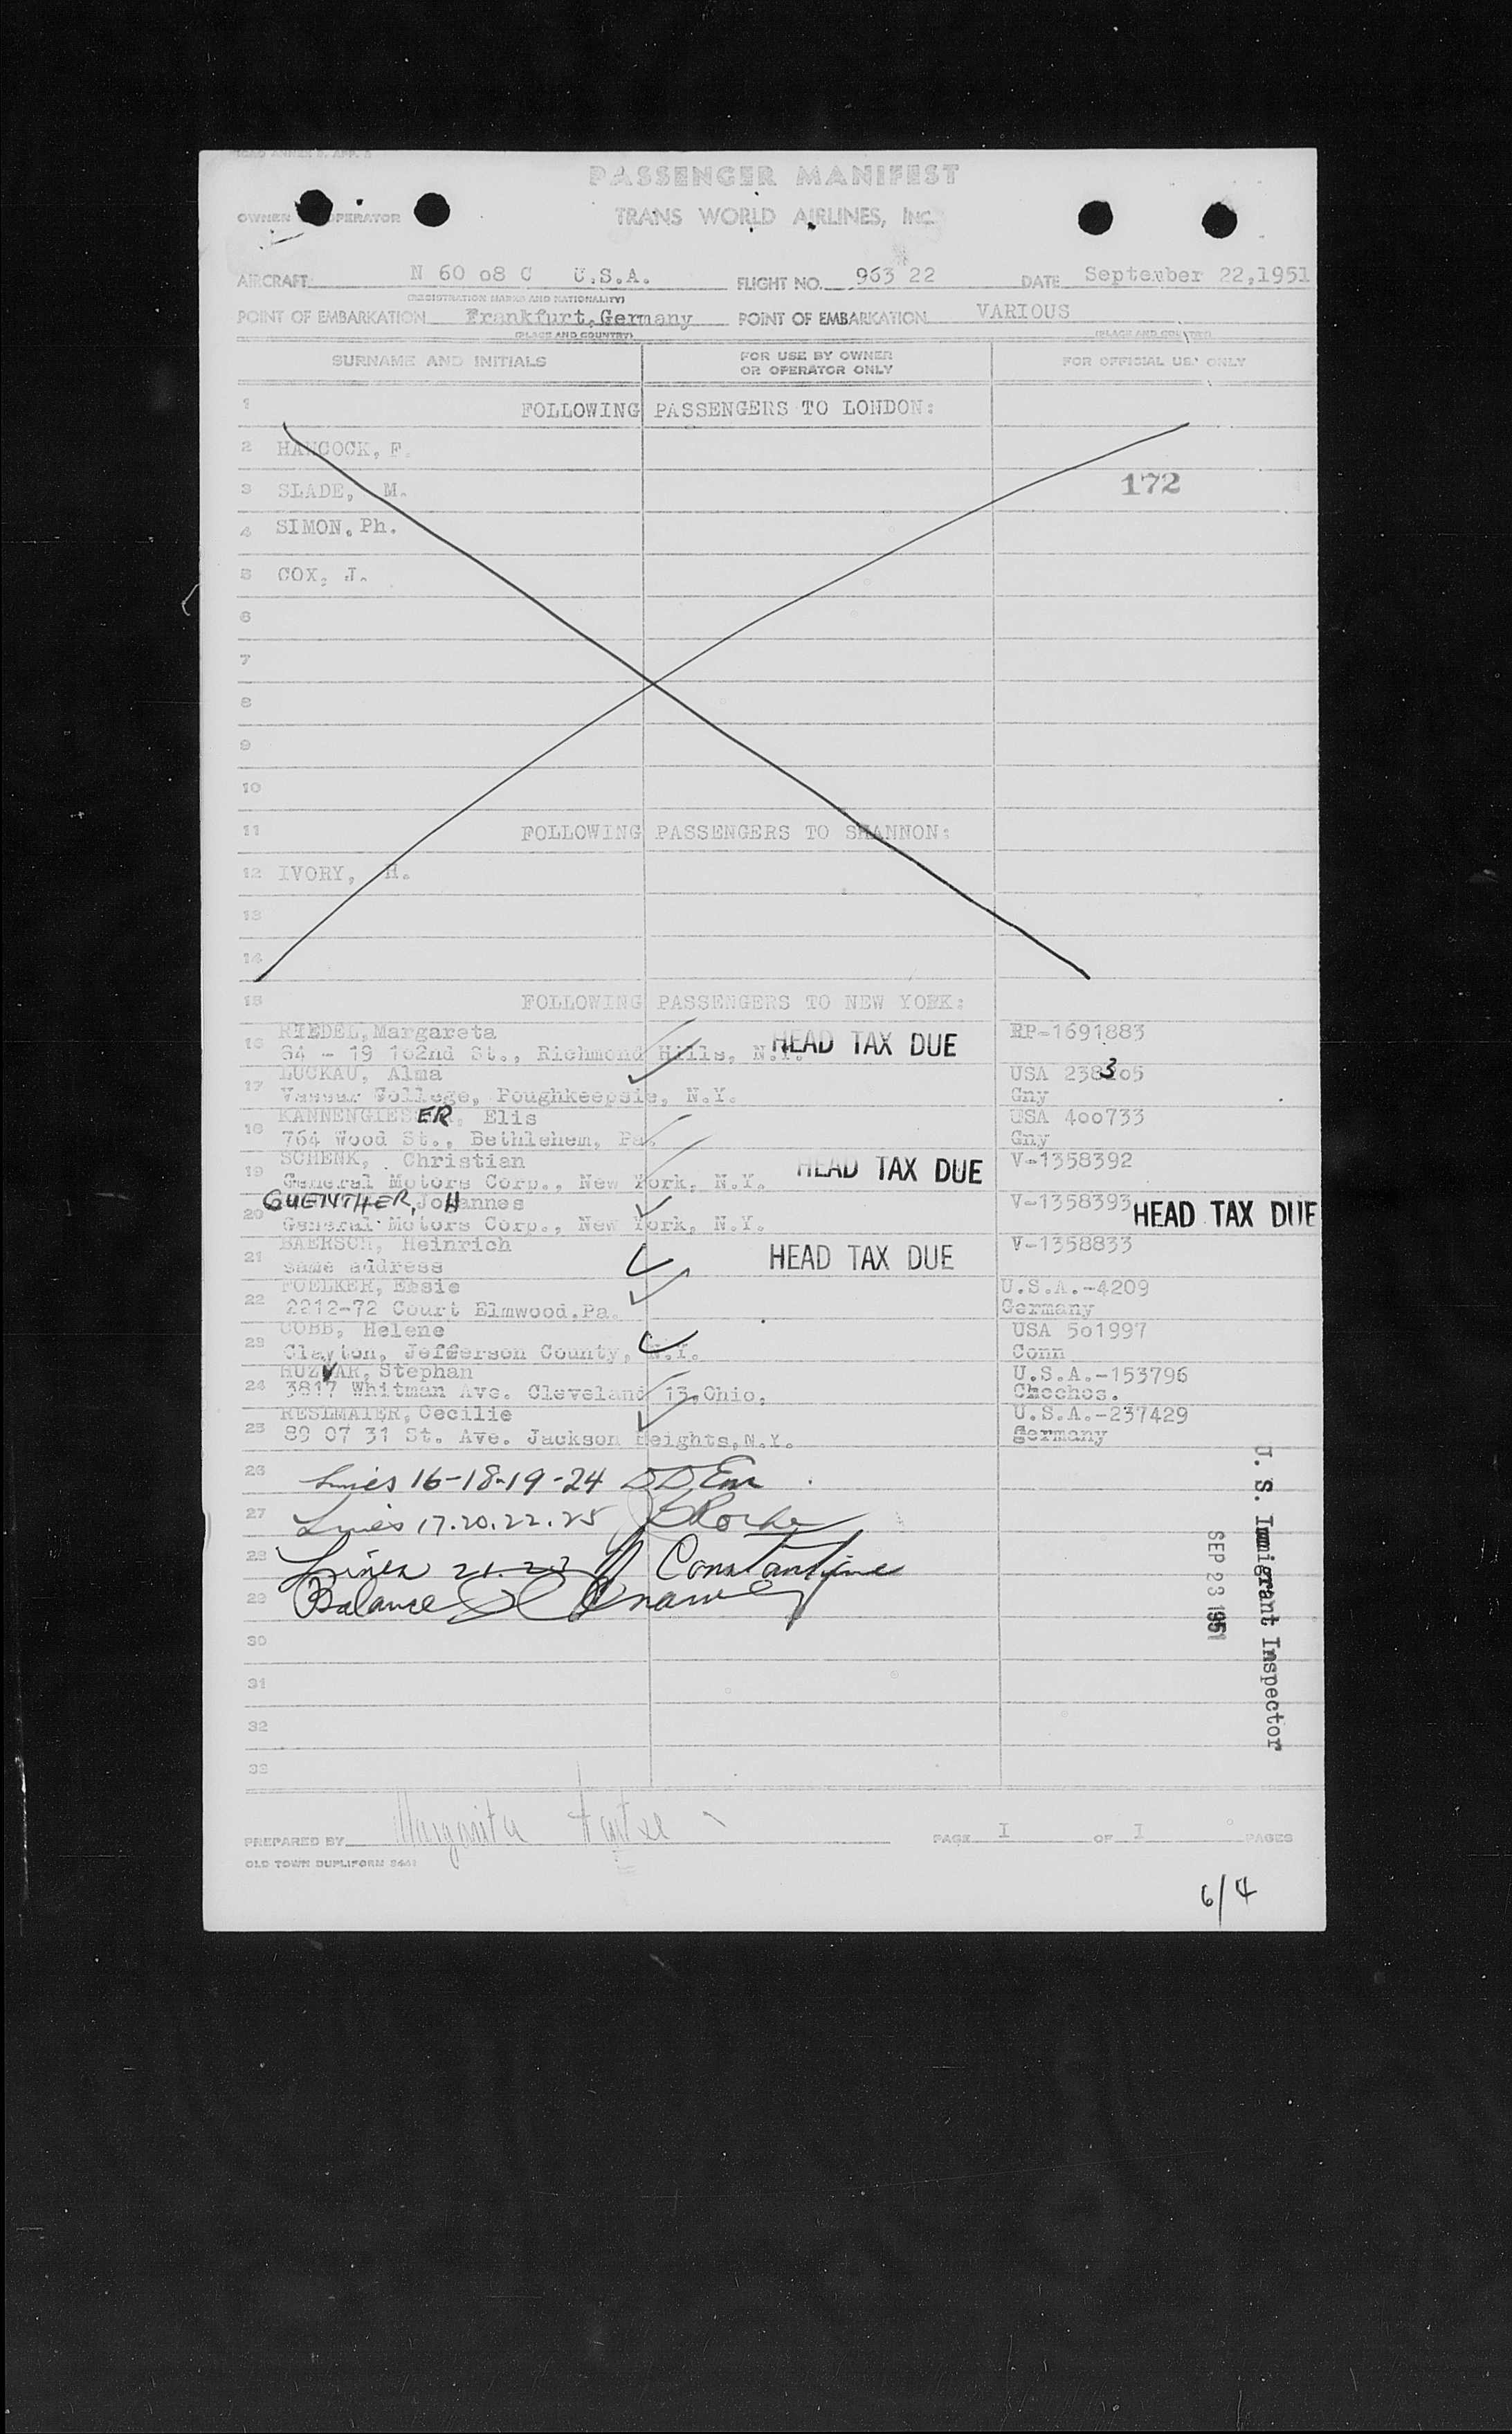 PASSENGER MANIFEST
OWNER OPERATOR TRANS WORLD AIRLINES, INC.
AIRCRAFT N 60 o8 C U.S.A. FLIGHT NO. 963 22 DATE September 22,1951
(REGISTRATION MARKS AND NATIONALITY)
POINT OF EMBARKATION Frankfurt,Germany POINT OF EMBARKATION VARIOUS
(PLACE AND COUNTRY) (PLACE AND COUNTRY)
SURNAME AND INITIALS FOR USE BY OWNER OR OPERATOR ONLY FOR OFFICIAL USE ONLY
1 FOLLOWING PASSENGERS TO LONDON:
2 HANCOCK, F.
3 SLADE, M. 172
4 SIMON, Ph.
5 COX, J.
6
7
8
9
10
11 FOLLOWING PASSENGERS TO SHANNON:
12 IVORY, H.
13
14
15 FOLLOWING PASSENGERS TO NEW YORK:
16 RIEDEL, Margareta HEAD TAX DUE RP-1691883
- 19 102nd St., Richmond Hills, N.Y.
17 LUCKAU, Alma USA 238305
Vassar College, Poughkeepsie, N.Y. Gny
18 KANNENGIESER, Elis USA 4oo733
764 Wood St., Bethlehem, Pa. Gny
19 SCHENK, Christian HEAD TAX DUE V-1358392
General Motors Corp., New York, N.Y.
20 GUENTHER, Johannes V-1358393 HEAD TAX DUE
General Motors Corp., New York, N.Y.
21 BAERSCH, Heinrich HEAD TAX DUE V-1358833
same address
22 FOELKER, Elsie U.S.A.-4209
2212-72 Court Elmwood.Pa. Germany
23 COBB, Helene USA 5o1997
Clayton, Jefferson County, N.Y. Conn
24 HUZVAR, Stephan U.S.A.-153796
3817 Whitman Ave. Cleveland 13,Ohio. Chechos.
25 RESLMAIER, Cecilie U.S.A.-237429
89 07 31 St. Ave. Jackson Heights,N.Y. Germany
26 Lines 16-18-19-24
27 Lines 17.20.22.25
28 Lines 21.23 Constantine
29 Balance
30
31
32
33
U. S. Immigrant Inspector
SEP 23 1951
PREPARED BY Margarita PAGE I OF I PAGES
OLD TOWN DUPLIFORM
6/4